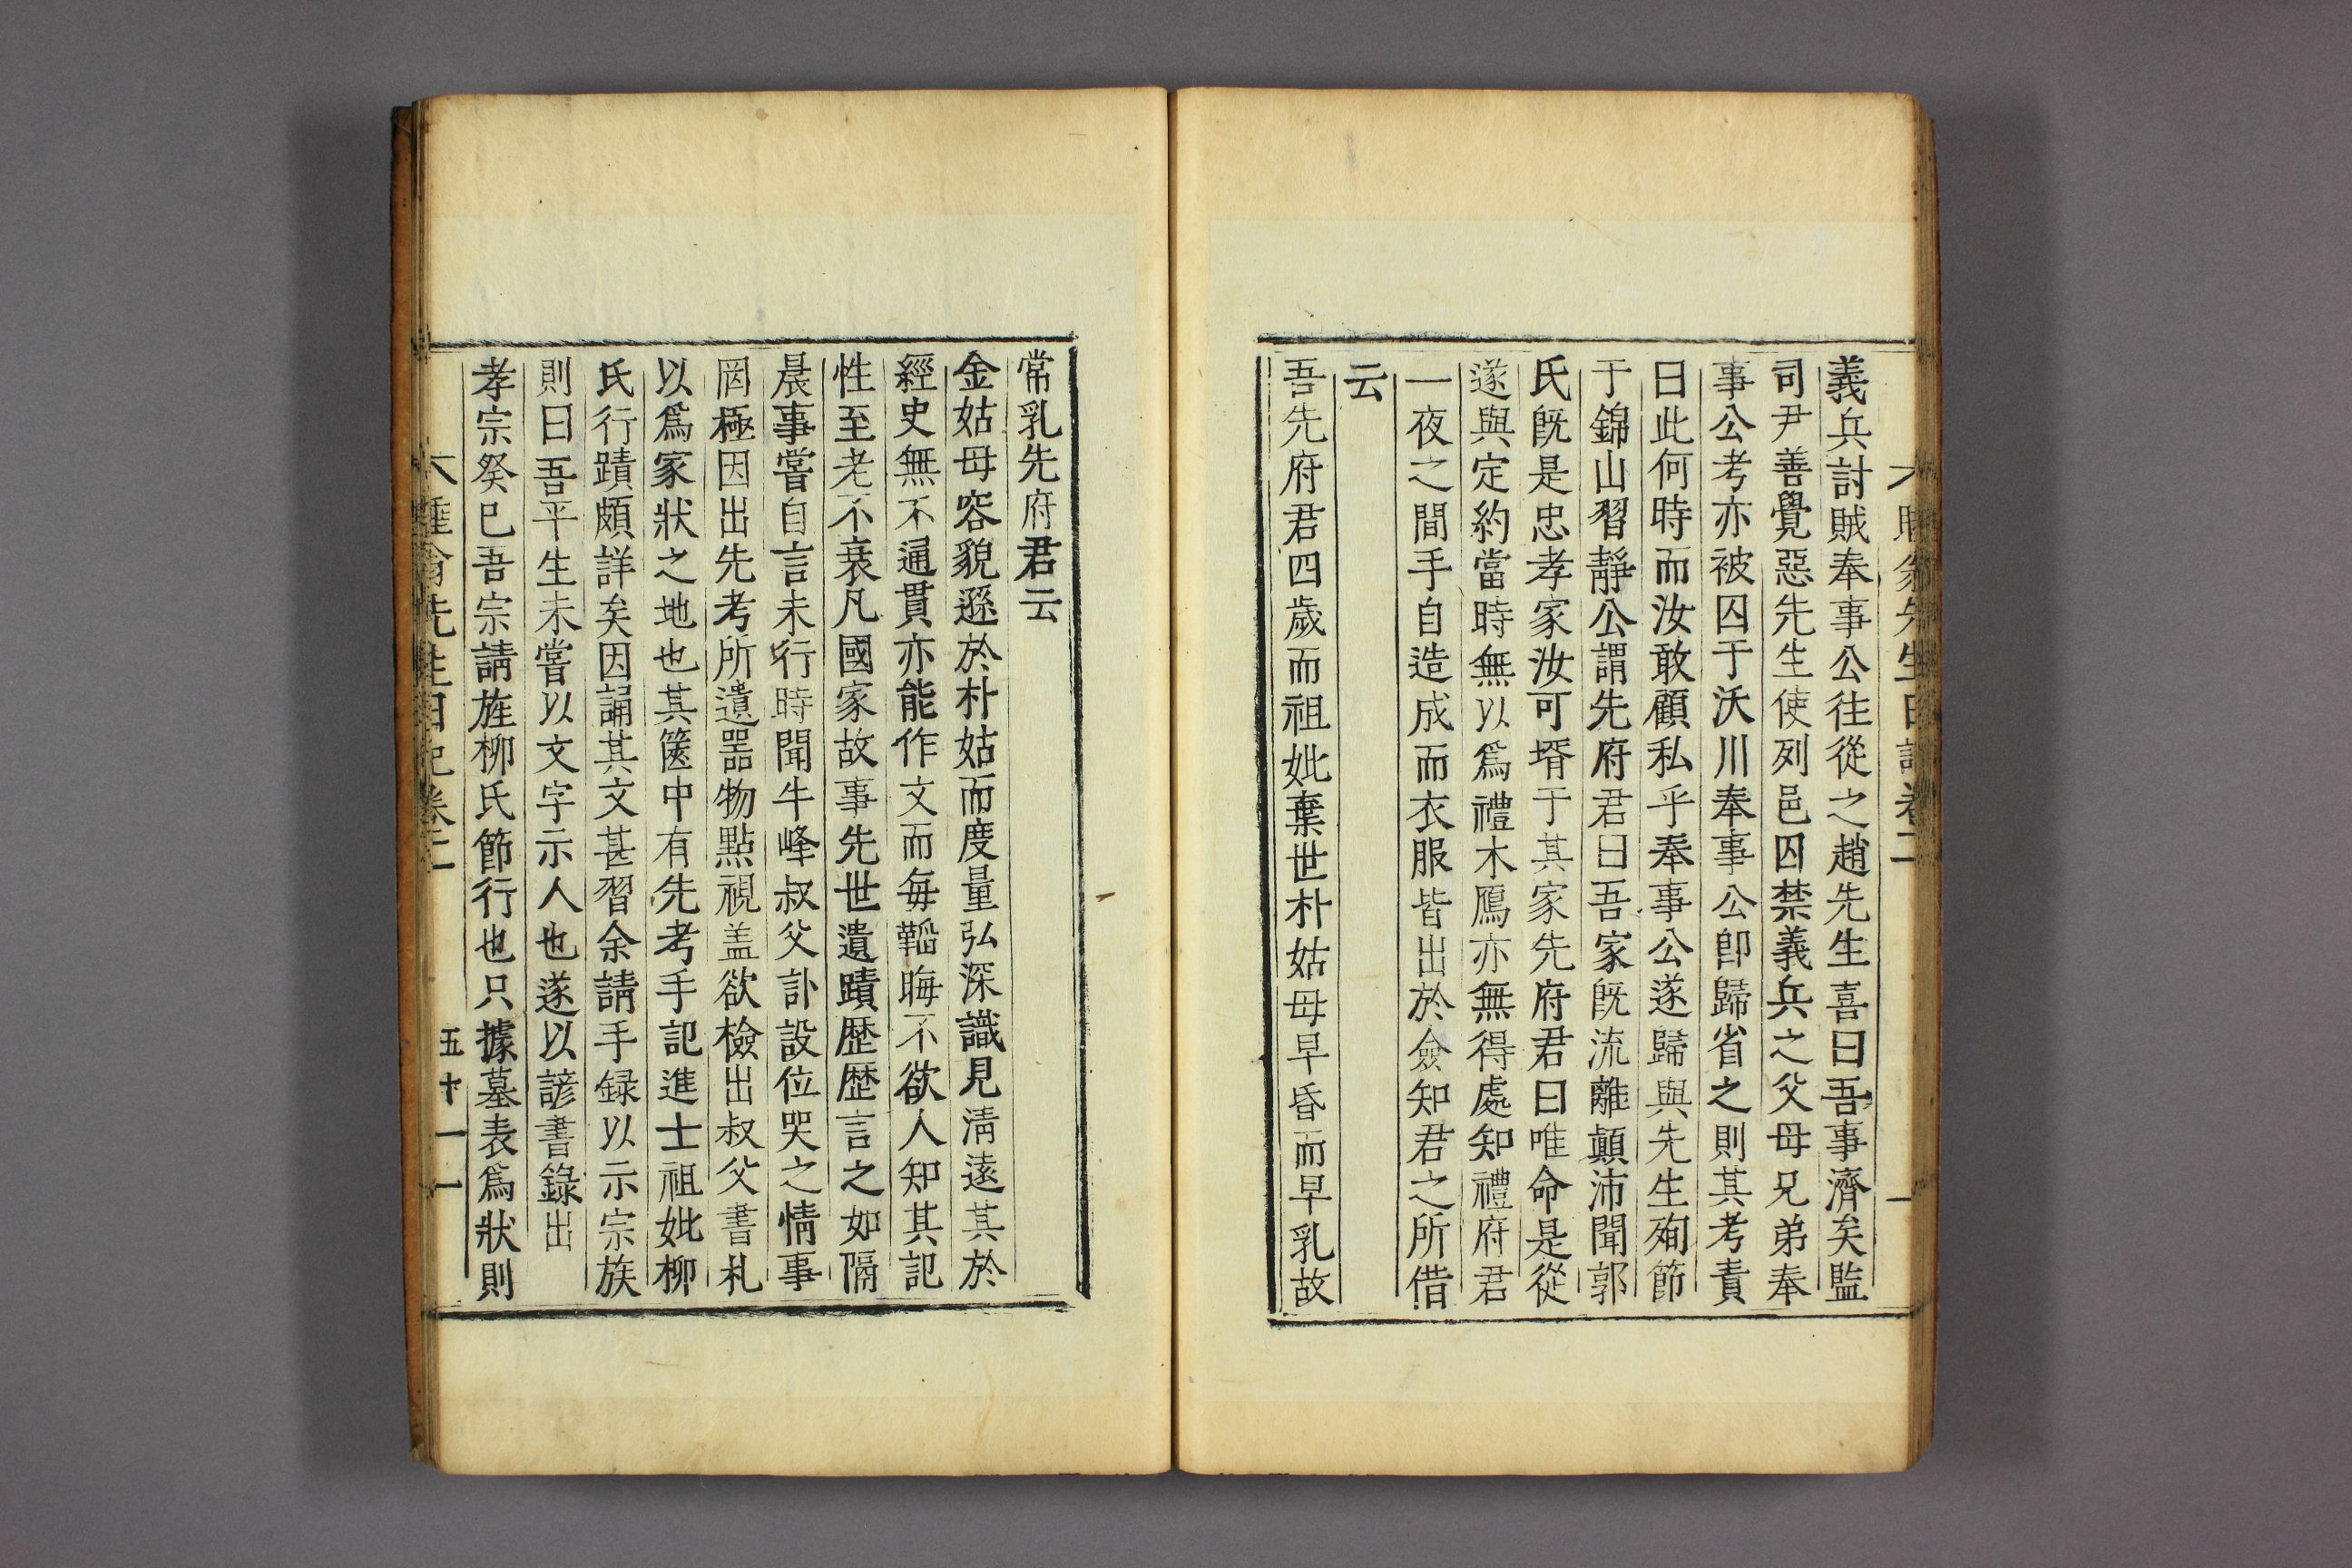 義兵討賊奉事公往從之趙先生喜曰吾事濟矣監
司尹善覺惡先生使列邑囚禁義兵之父母兄弟奉
事公考亦被囚于沃川奉事公卽歸省之則其考責
曰此何時而汝敢顧私乎奉事公遂歸與先生殉節
于錦山習靜公謂先府君曰吾家旣流離顚沛聞郭
氏旣是忠孝家汝可壻于其家先府君曰唯命是從
遂與定約當時無以爲禮木鴈亦無得處知禮府君
一夜之間手自造成而衣服皆出於僉知君之所借
云
吾先府君四歲而祖妣棄世朴姑母早昏而早乳故
常乳先府君云
金姑母容貌遜於朴姑而度量弘深識見淸遠其於
經史無不通貫亦能作文而每韜晦不欲人知其記
性至老不衰凡國家故事先世遺蹟歷歷言之如隔
晨事嘗自言未行時聞牛峰叔父訃設位哭之情事
罔極因出先考所遺器物點視盖欲檢出叔父書札
以爲家狀之地也其篋中有先考手記進士祖妣柳
氏行蹟頗詳矣因誦其文甚習余請手録以示宗族
則曰吾平生未嘗以文字示人也遂以諺書錄出
孝宗癸巳吾宗請旌柳氏節行也只據墓表爲狀則
先生日記卷二
五十一